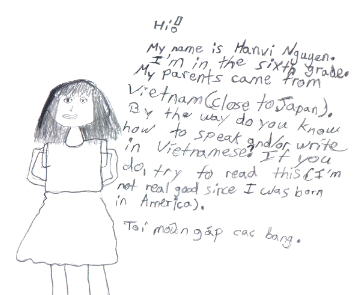 Hi!!
My name is Hanvi Nguyen.
I'm in the sixth grade.
My parents came from
Vietnam (close to Japan).
By the way do you know
how to speak and/or write
in Vietnamese? If you
do, try to read this (I'm
not real good since I was born
in America).
Toi muốn gáp cac bang.